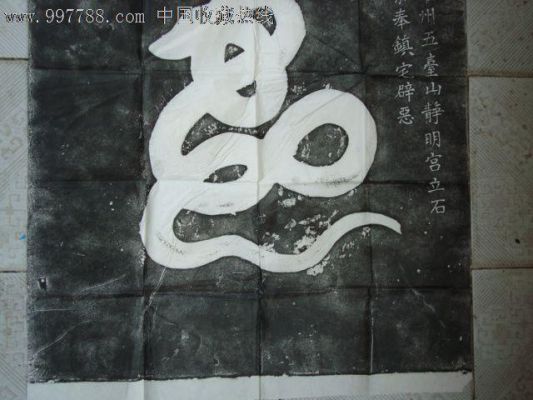 www.997788.com 中国收藏热线
州五臺山靜明宮立石
奉鎮宅辟惡